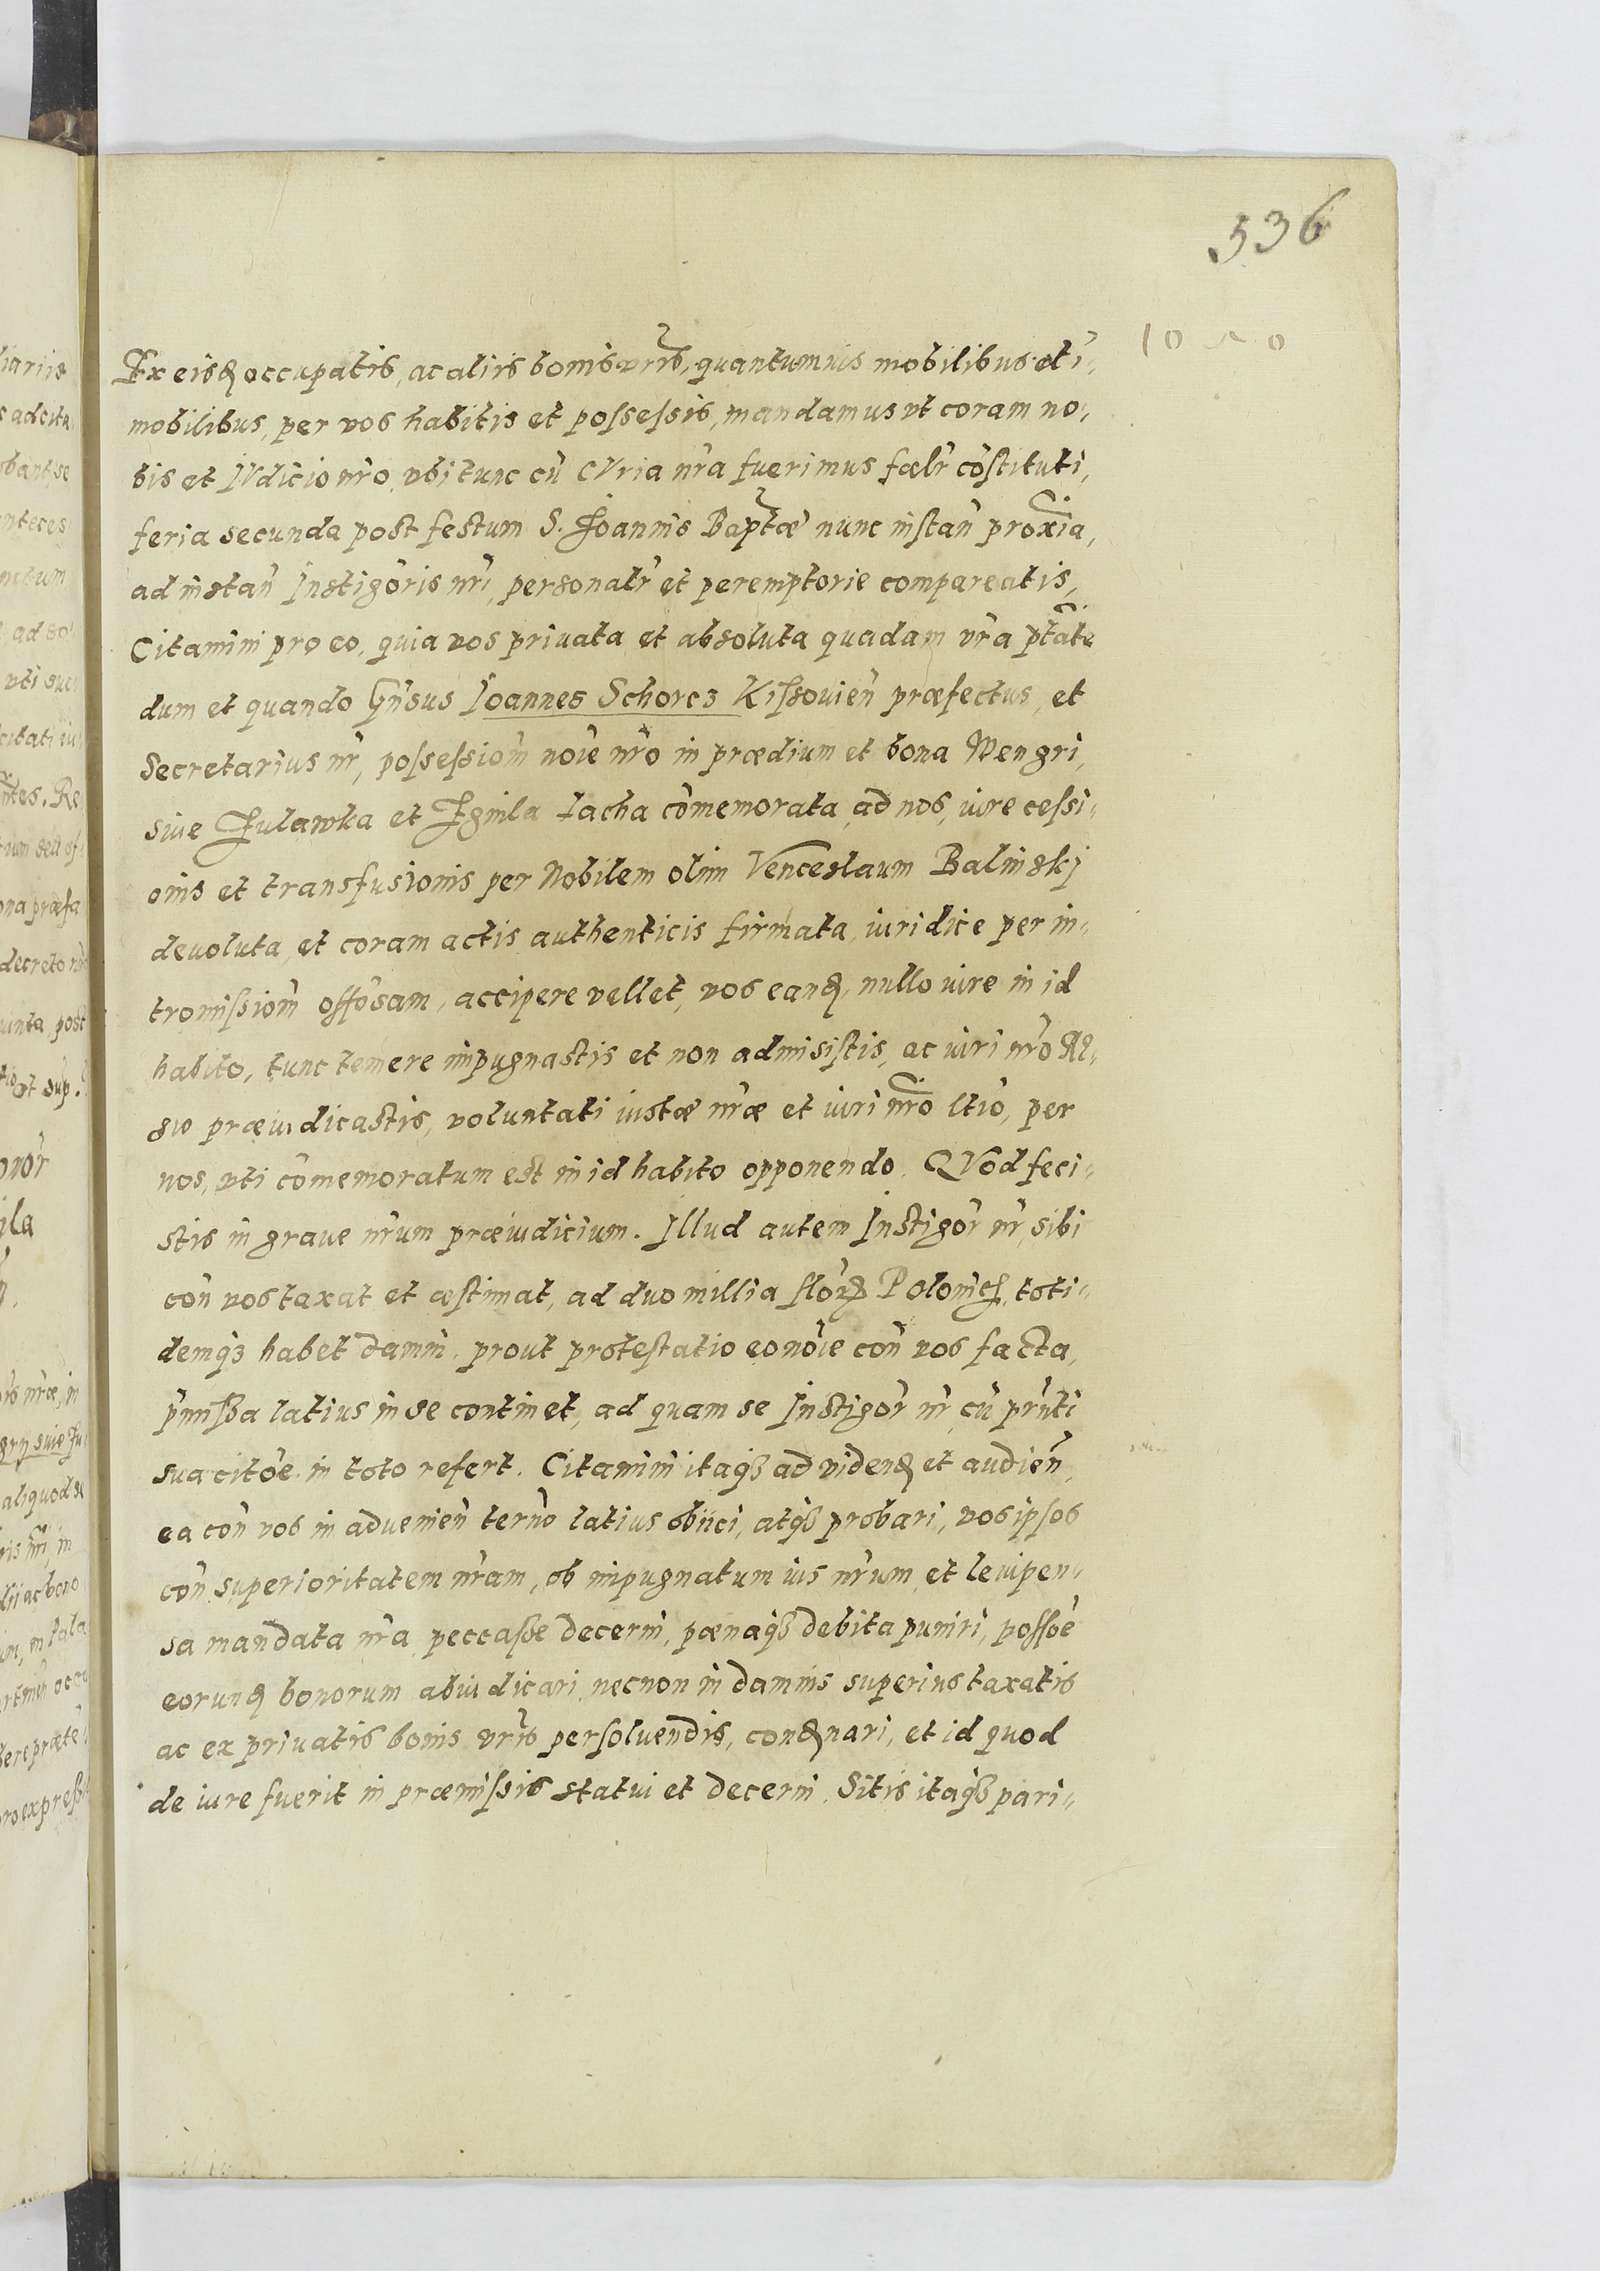 536
Ex eisd occupatis, ac aliis bonis vris, quantumuis mobilibus et i-
mobilibus, per vos habitis et possessis, mandamus vt coram no-
bis et IVdicio nro, vbi tunc cu CVria nra fuerimus fœlr cõstituti,
feria secunda post festum S. Joannis Baptæ nunc instan proxia,
ad instan Instigoris nri, personalr et peremptorie compareatis,
Citamini pro eo, quia vos priuata et absoluta quadam vra ptate
dum et quando Gnsus Joannes Schorcz Kissouien præfectus, et
Secretarius nr, possessiom noie nro in prædium et bona Wengri,
siue Julawka et Jgnila Iacha cõmemorata, ad nos, iure cessi-
onis et transfusionis per Nobilem olim Venceslaum Balinskj
deuoluta, et coram actis authenticis firmata, iuridice per in-
tromissiom offõsam, accipere vellet, vos eand, nullo iure in id
habito, tunc temere impugnastis et non admisistis, ac iuri nro Re-
gio præiudicastis, voluntati iustæ nræ et iuri nro ltio, per
nos, vti cõmemoratum est in id habito opponendo. QVod feci-
stis in graue nrum præiudicium. Illud autem Instigor nr, sibi
con vos taxat et æstimat, ad duo millia flor Polonic, toti-
demq3 habet damni, prout protestatio eo noie con vos facta,
pmissa latius in se continet, ad quam se Instigor nr, cu prnti
sua citoe in toto refert. Citamini itaq3 ad vidend et audien,
ea con vos in aduenien terno latius obiici, atq3 probari, vos ipsos
con superioritatem nram, ob impugnatum ius nrum, et leuipen-
sa mandata nra, peccasse decerni, pœnaq3 debita puniri, possoe
eorund bonorum abiudicari, necnon in damnis superius taxatis
ac ex priuatis bonis vris persoluendis, condnari, et id quod
de iure fuerit in præmissis statui et decerni. Sitis itaq3 pari-